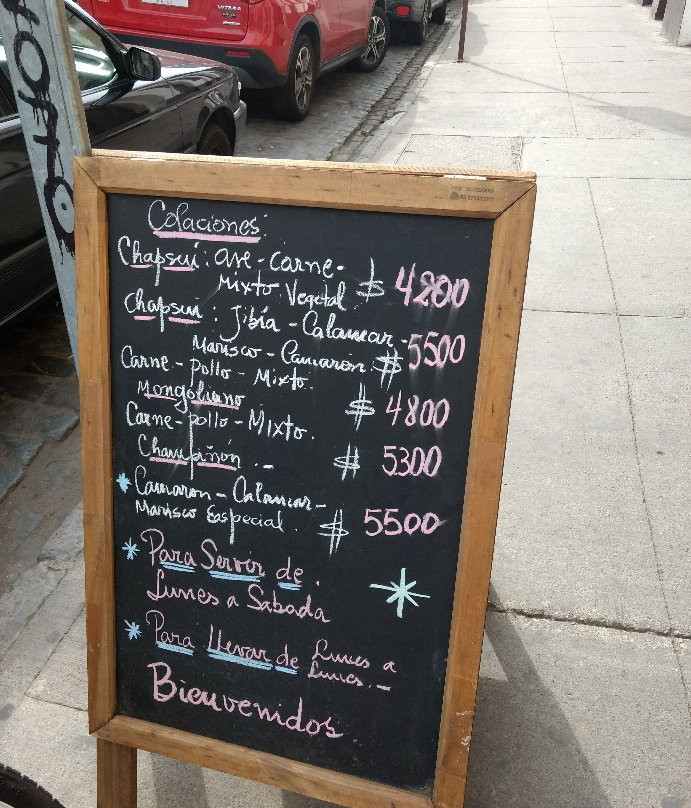 VITARA
Colaciones:
Chapsui: ave - carne -
Mixto Vegetal $ 4800
Chapsui: Jibia - Calamar -
Marisco - Camaron $ 5500
Carne - pollo - Mixto.
Mongoliano $ 4800
Carne - pollo - Mixto.
Champiñón .- $ 5300
* Camaron - Calamar -
Marisco Easpecial. $ 5500
* Para Servir de.
Lunes a Sabada
* Para Llevar de Lunes a
Lunes.-
Bienvenidos.